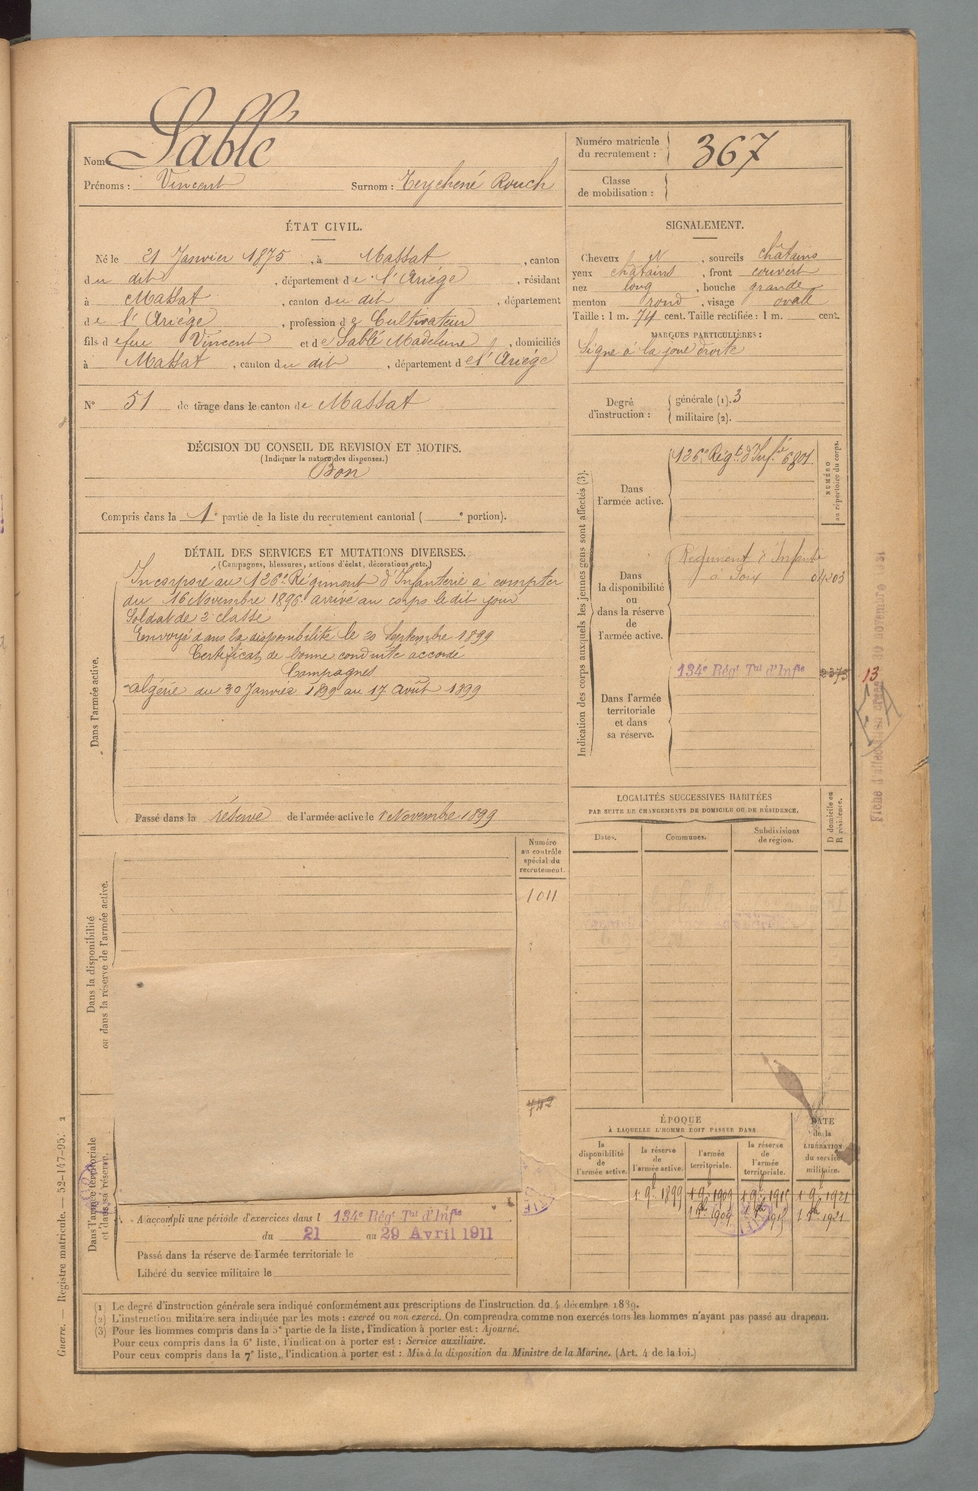 Nom Sablé
Prénoms : Vincent Surnom : Teychené Rouch
Numéro matricule du recrutement : 367
Classe de mobilisation :
ÉTAT CIVIL.
Né le 21 Janvier 1875, à Massat, canton
du dit, département de l'Ariège, résidant
à Massat, canton du dit, département
de l'Ariège, profession de Cultivateur
fils de feu Vincent et de Sablé Madeleine, domiciliés
à Massat, canton du dit, département de l'Ariège
N° 51 de tirage dans le canton de Massat
DÉCISION DU CONSEIL DE REVISION ET MOTIFS.
(Indiquer la nature des dispenses.)
Bon
Compris dans la 1e partie de la liste du recrutement cantonal ( e portion).
SIGNALEMENT.
Cheveux et, sourcils châtains
yeux châtains, front couvert
nez long, bouche grande
menton rond, visage ovale
Taille : 1 m. 74 cent. Taille rectifiée : 1 m. cent.
MARQUES PARTICULIÈRES :
Signe à la joue droite
Degré d'instruction : générale (1). 3
militaire (2).
DÉTAIL DES SERVICES ET MUTATIONS DIVERSES.
(Campagnes, blessures, actions d'éclat, décorations, etc.)
Dans l'armée active.
Incorporé au 126e Régiment d'Infanterie à compter
du 16 Novembre 1896 arrivé au corps le dit jour
Soldat de 2e classe
Envoyé dans la disponibilité le 20 Septembre 1899
Certificat de bonne conduite accordé
Campagnes
Algérie du 30 Janvier 1899 au 17 Août 1899
Passé dans la réserve de l'armée active le 1 Novembre 1899
Indication des corps auxquels les jeunes gens sont affectés (3).
NUMÉRO au répertoire du corps.
Dans l'armée active.
126e Régt d'Infie 6801
Dans la disponibilité ou dans la réserve de l'armée active.
Régiment d'Infanterie
à Foix 04203
Dans l'armée territoriale et dans sa réserve.
134e Régt Tal d'Infie
13
Fiche d'affectation 30 novembre
LOCALITÉS SUCCESSIVES HABITÉES
PAR SUITE DE CHANGEMENTS DE DOMICILE OU DE RÉSIDENCE.
Dates. Communes. Subdivisions de région. D domicile ou R résidence.
Dans la disponibilité ou dans la réserve de l'armée active.
Numéro au contrôle spécial du recrutement.
1011
742
Dans l'armée territoriale et dans sa réserve.
A accompli une période d'exercices dans l 134e Régt Tal d'Infie
du 21 au 29 Avril 1911
Passé dans la réserve de l'armée territoriale le
Libéré du service militaire le
ÉPOQUE
À LAQUELLE L'HOMME DOIT PASSER DANS
la disponibilité de l'armée active.
la réserve de l'armée active.
l'armée territoriale.
la réserve de l'armée territoriale.
DATE de la LIBÉRATION du service militaire.
1 9e 1899 1 9e 1909 1 9e 1915 1 9e 1921
1 8e 1909 1 8e 1915 1 8e 1921
(1) Le degré d'instruction générale sera indiqué conformément aux prescriptions de l'instruction du 4 décembre 1889.
(2) L'instruction militaire sera indiquée par les mots : exercé ou non exercé. On comprendra comme non exercés tous les hommes n'ayant pas passé au drapeau.
(3) Pour les hommes compris dans la 5e partie de la liste, l'indication à porter est : Ajourné.
Pour ceux compris dans la 6e liste, l'indication à porter est : Service auxiliaire.
Pour ceux compris dans la 7e liste, l'indication à porter est : Mis à la disposition du Ministre de la Marine. (Art. 4 de la loi.)
Guerre. — Registre matricule. — 52-147-95. 2